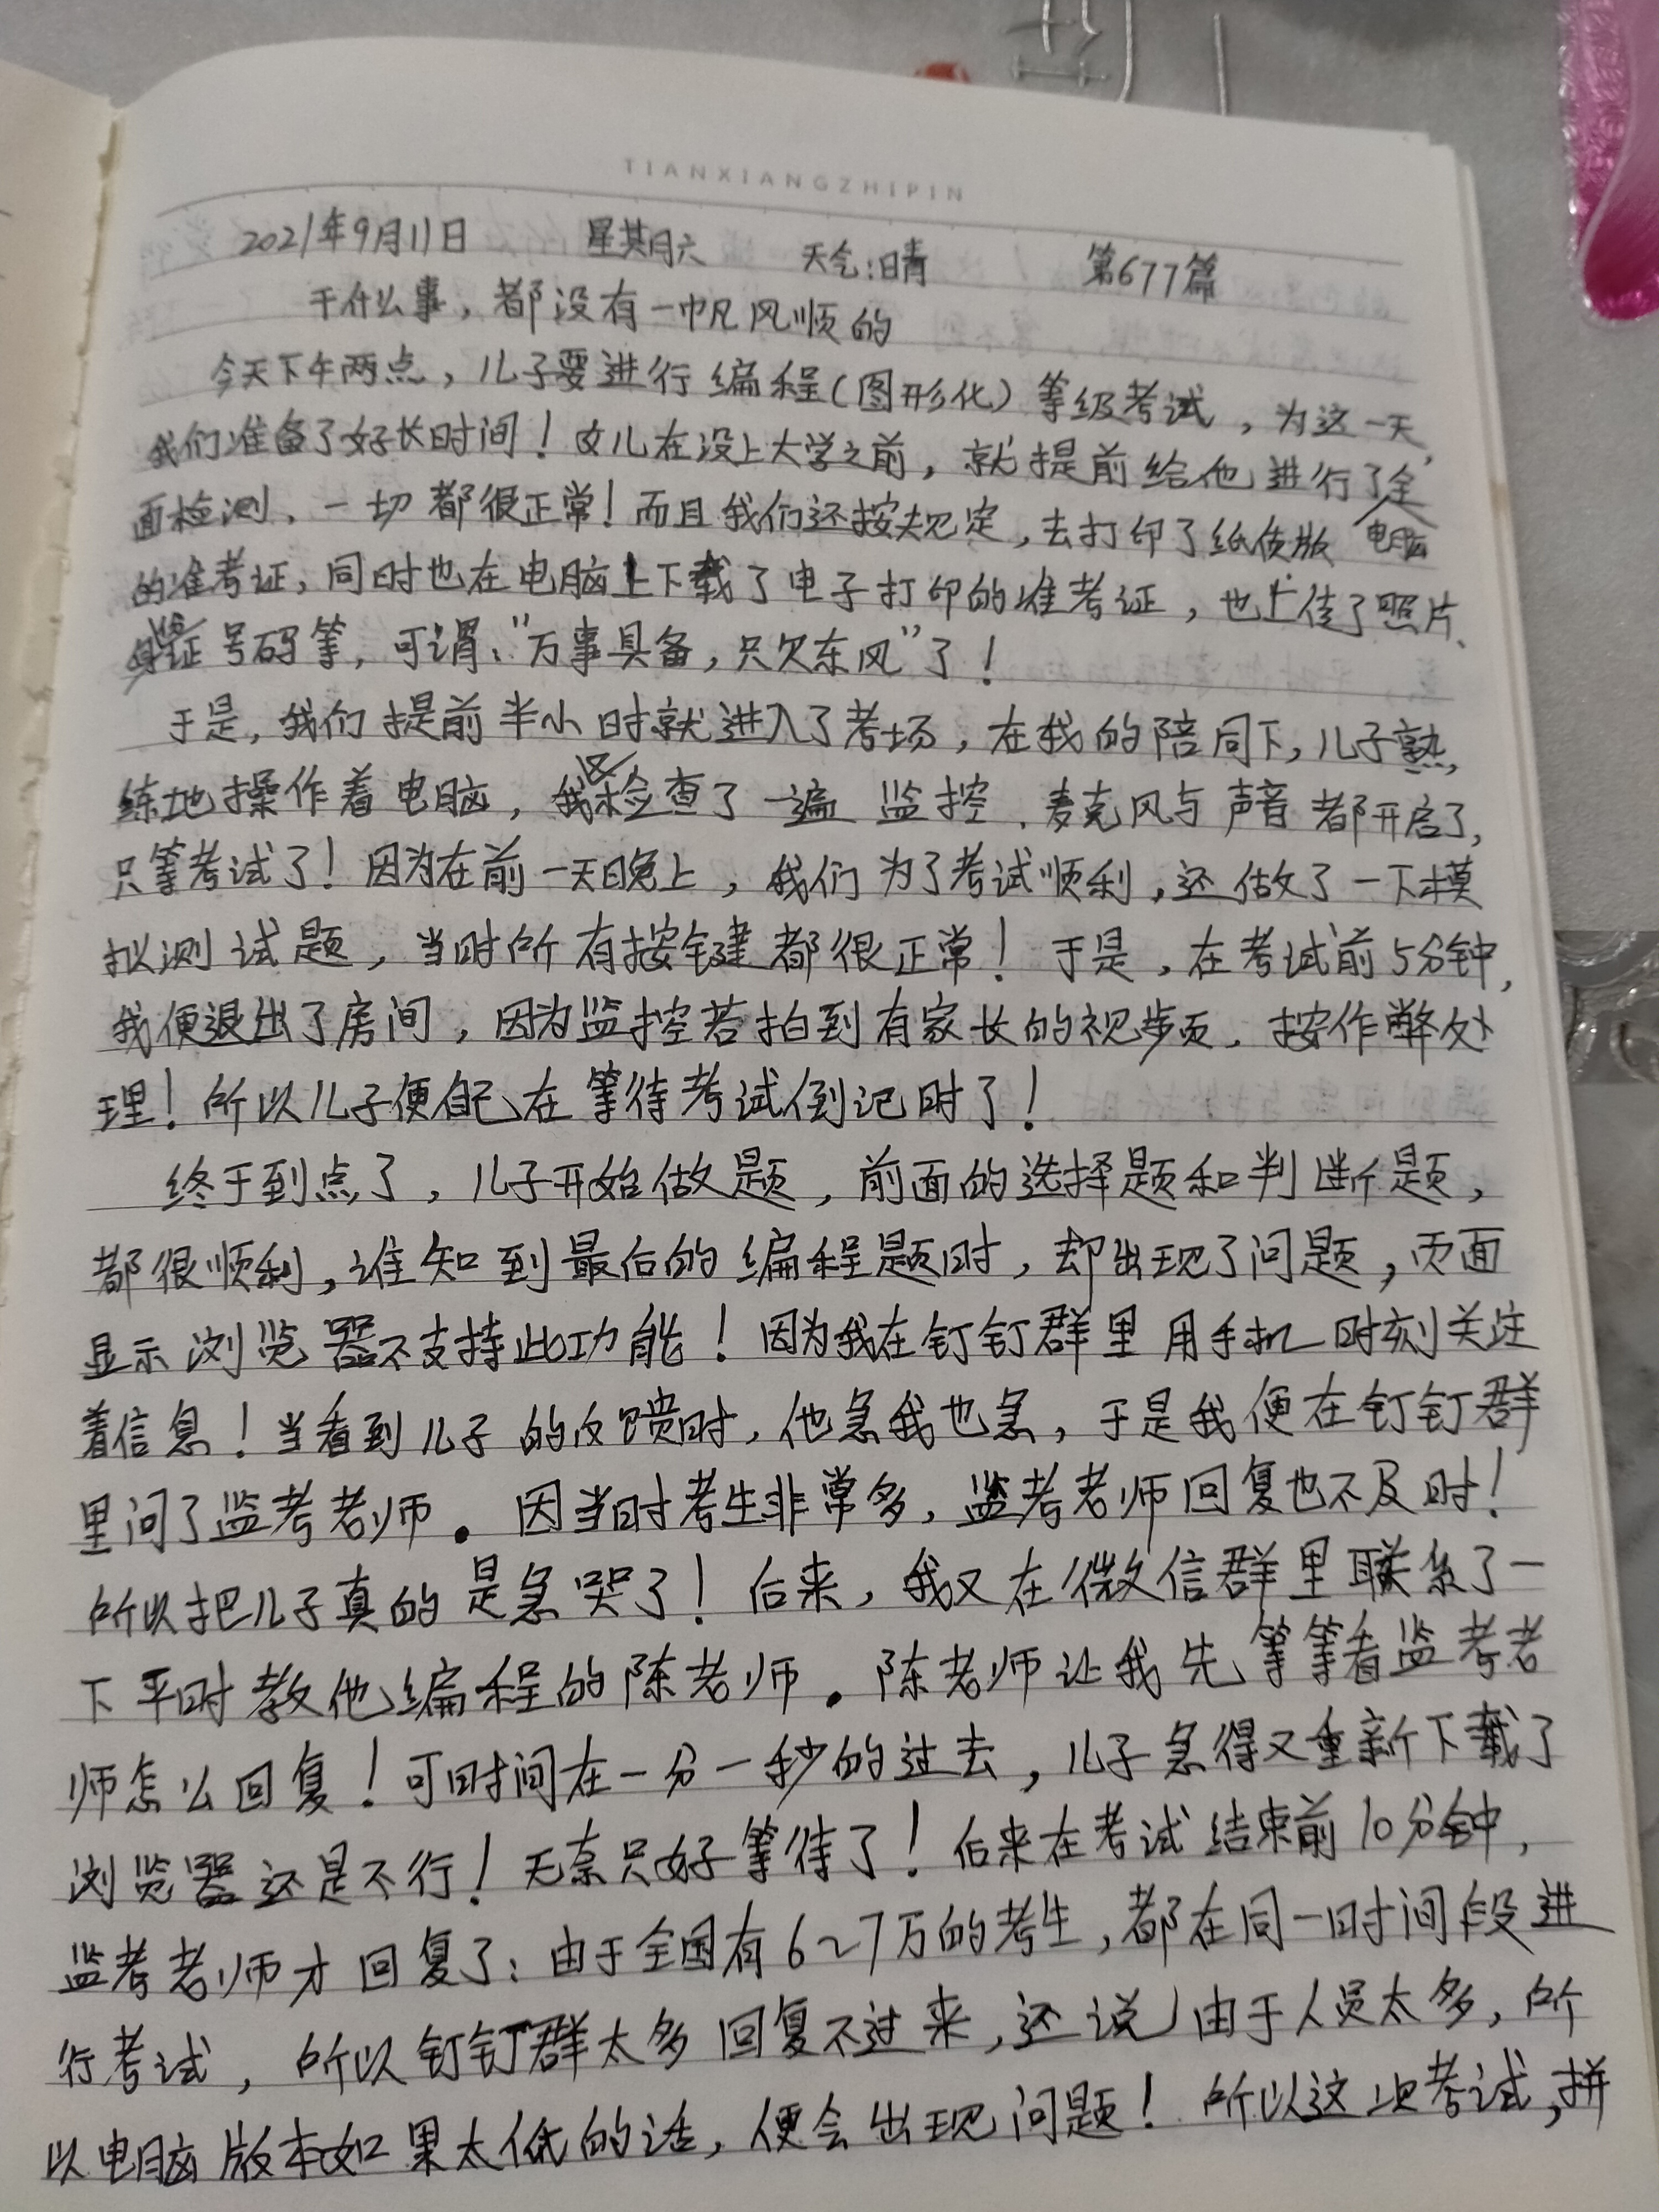 TIANXIANGZHIPIN
2021年9月11日 星其月六 天气:晴 第677篇
干什么事，都没有一帆风顺的
今天下午两点，儿子要进行编程(图形化)等级考试，为这一天，
我们准备了好长时间！女儿在没上大学之前，就提前给他进行了全
电脑
面检测、一切都很正常！而且我们还按规定，去打印了纸质版
的准考证，同时也在电脑上下载了电子打印的准考证，也上传了照片、
证号码等，可谓:"万事具备，只欠东风"了！
于是，我们提前半小时就进入了考场，在我的陪同下，儿子熟
又
练地操作着电脑，我检查了一遍监控、麦克风与声音都开启了，
只等考试了！因为在前一天晚上，我们为了考试顺利，还做了一下模
拟测试题，当时所有按键都很正常！于是，在考试前5分钟，
我便退出了房间，因为监控若拍到有家长的视频，按作弊处
理！所以儿子便自己在等待考试倒记时了！
终于到点了，儿子开始做题，前面的选择题和判断题，
都很顺利，谁知到最后的编程题时，却出现了问题，页面
显示浏览器不支持此功能！因为我在钉钉群里用手机时刻关注
着信息！当看到儿子的反馈时，他急我也急，于是我便在钉钉群
里问了监考老师。因当时考生非常多，监考老师回复也不及时！
所以把儿子真的是急哭了！后来，我又在微信群里联系了一
下平时教他编程的陈老师。陈老师让我先等等看监考老
师怎么回复！可时间在一分一秒的过去，儿子急得又重新下载了
浏览器还是不行！无奈只好等待了！后来在考试结束前10分钟，
监考老师才回复了：由于全国有6~7万的考生，都在同一时间段进
行考试，所以钉钉群太多回复不过来，还说由于人员太多，所
以电脑版本如果太低的话，便会出现问题！所以这次考试，拼